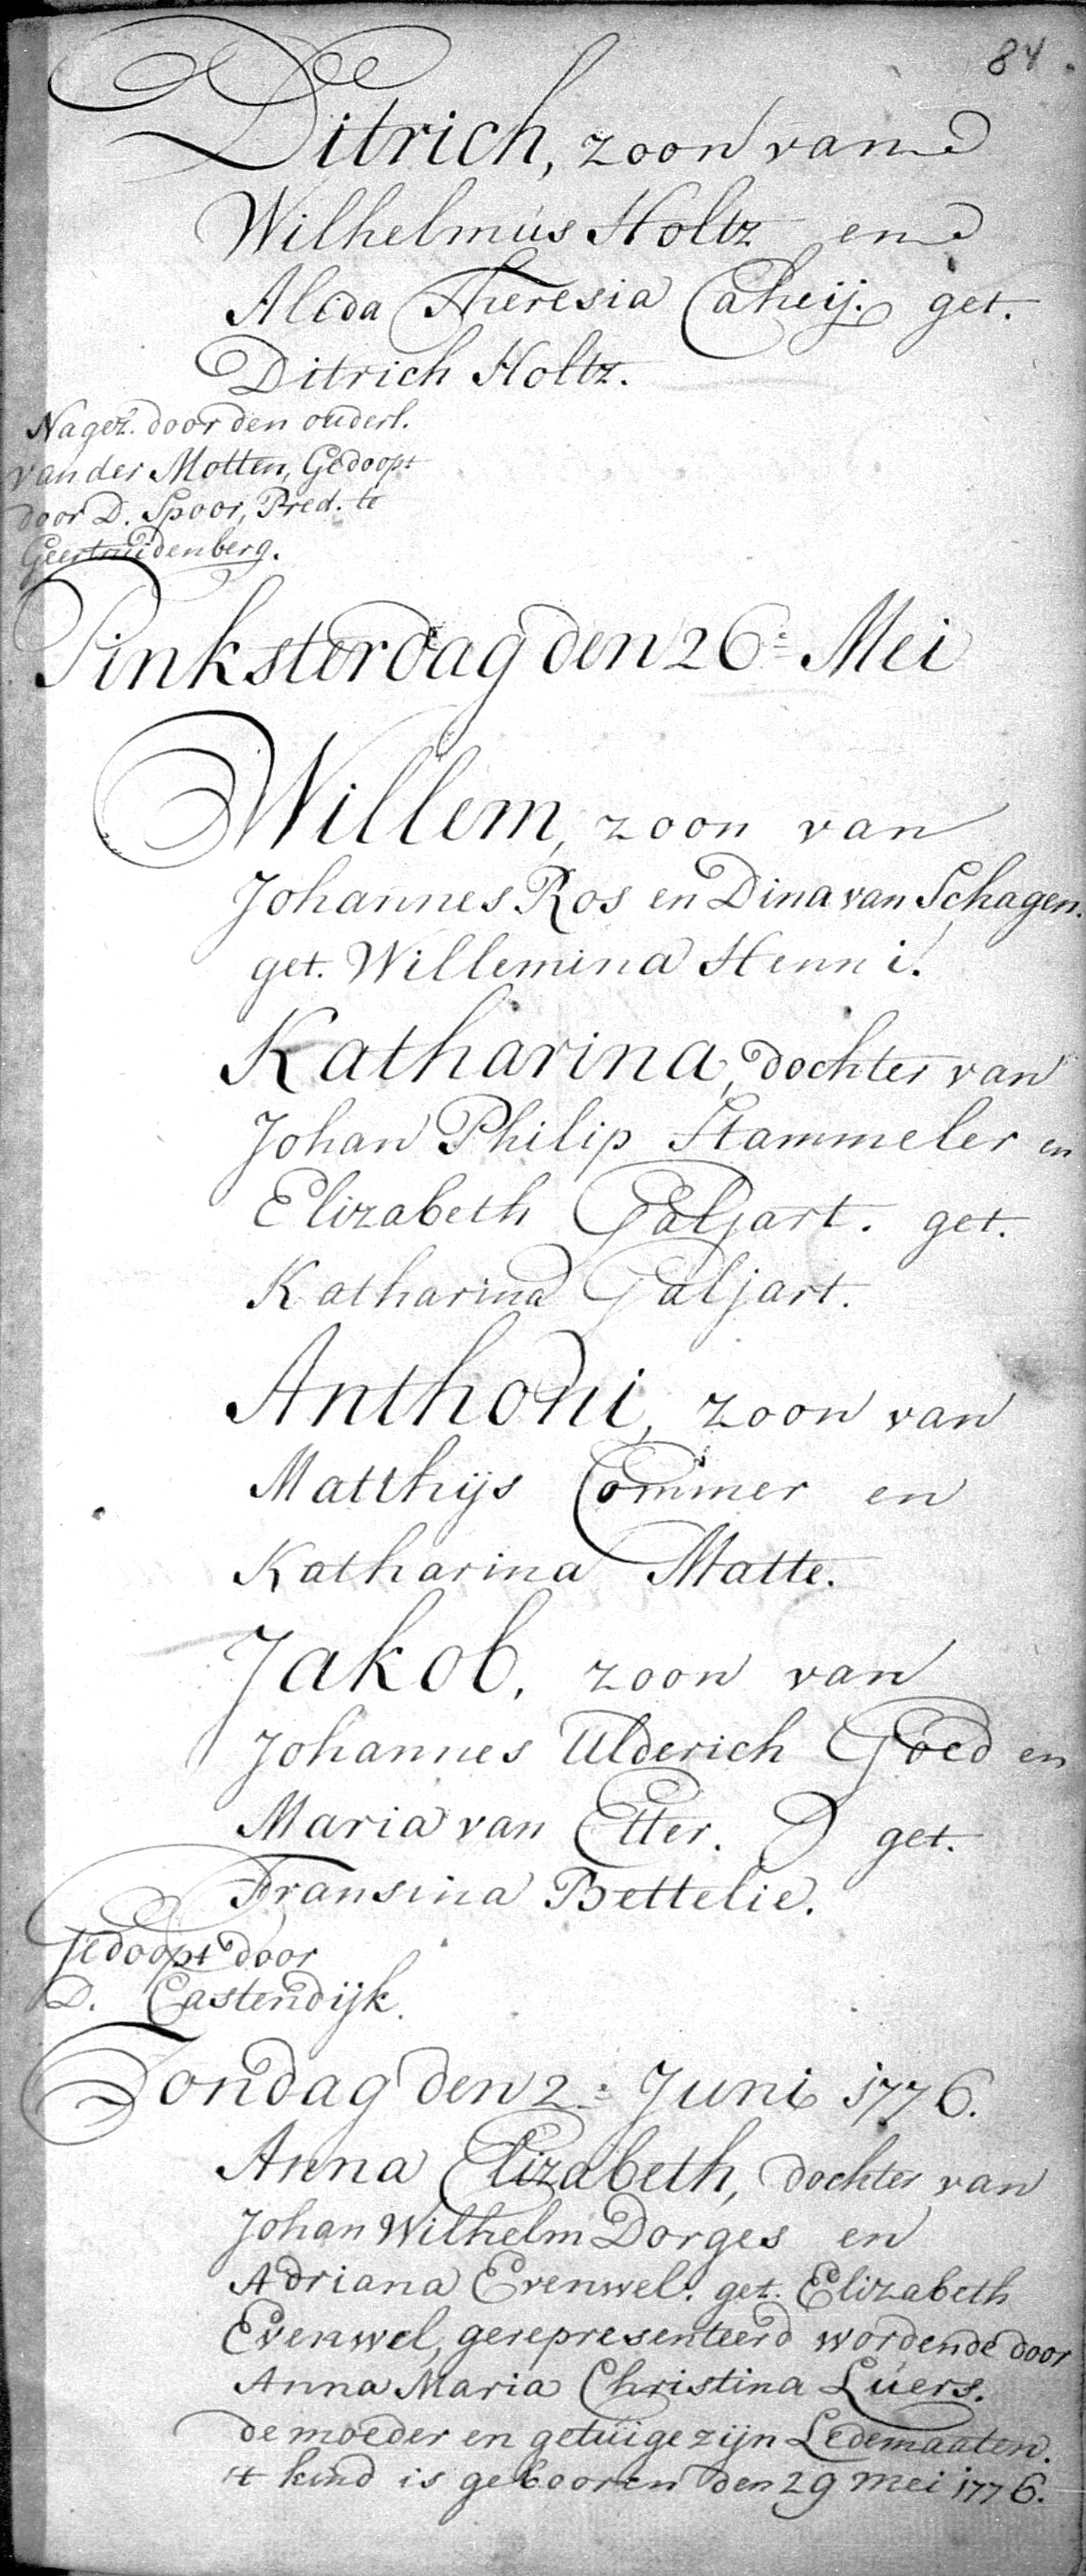 84.
Ditrich, zoon van
Wilhelmus Holtz en
Alida Theresia Caheij. get.
Ditrich Holtz.
Nagez. door den ouderl.
van der Motten, Gedoopt
door D. Spoor, Pred. te
Geertruidenberg.
Pinksterdag den 26: Mei
Willem, zoon van
Johannes Ros en Dina van Schagen.
get. Willemina Henni.
Katharina, dochter van
Johan Philip Stammeler en
Elizabeth Galjart. get.
Katharina Galjart.
Anthoni, zoon van
Matthijs Commer en
Katharina Matte.
Jakob, zoon van
Johannes Ulderich Goed en
Maria van Etter. get.
Fransina Bettelie.
Gedoopt door
D. Castendijk.
Zondag den 2: Juni 1776.
Anna Elizabeth, dochter van
Johan Wilhelm Dorges en
Adriana Evenwel. get. Elizabeth
Evenwel, gerepresenteerd wordende door
Anna Maria Christina Lúers.
de moeder en getuige zijn Ledemaaten.
't kind is gebooren den 29 Mei 1776.